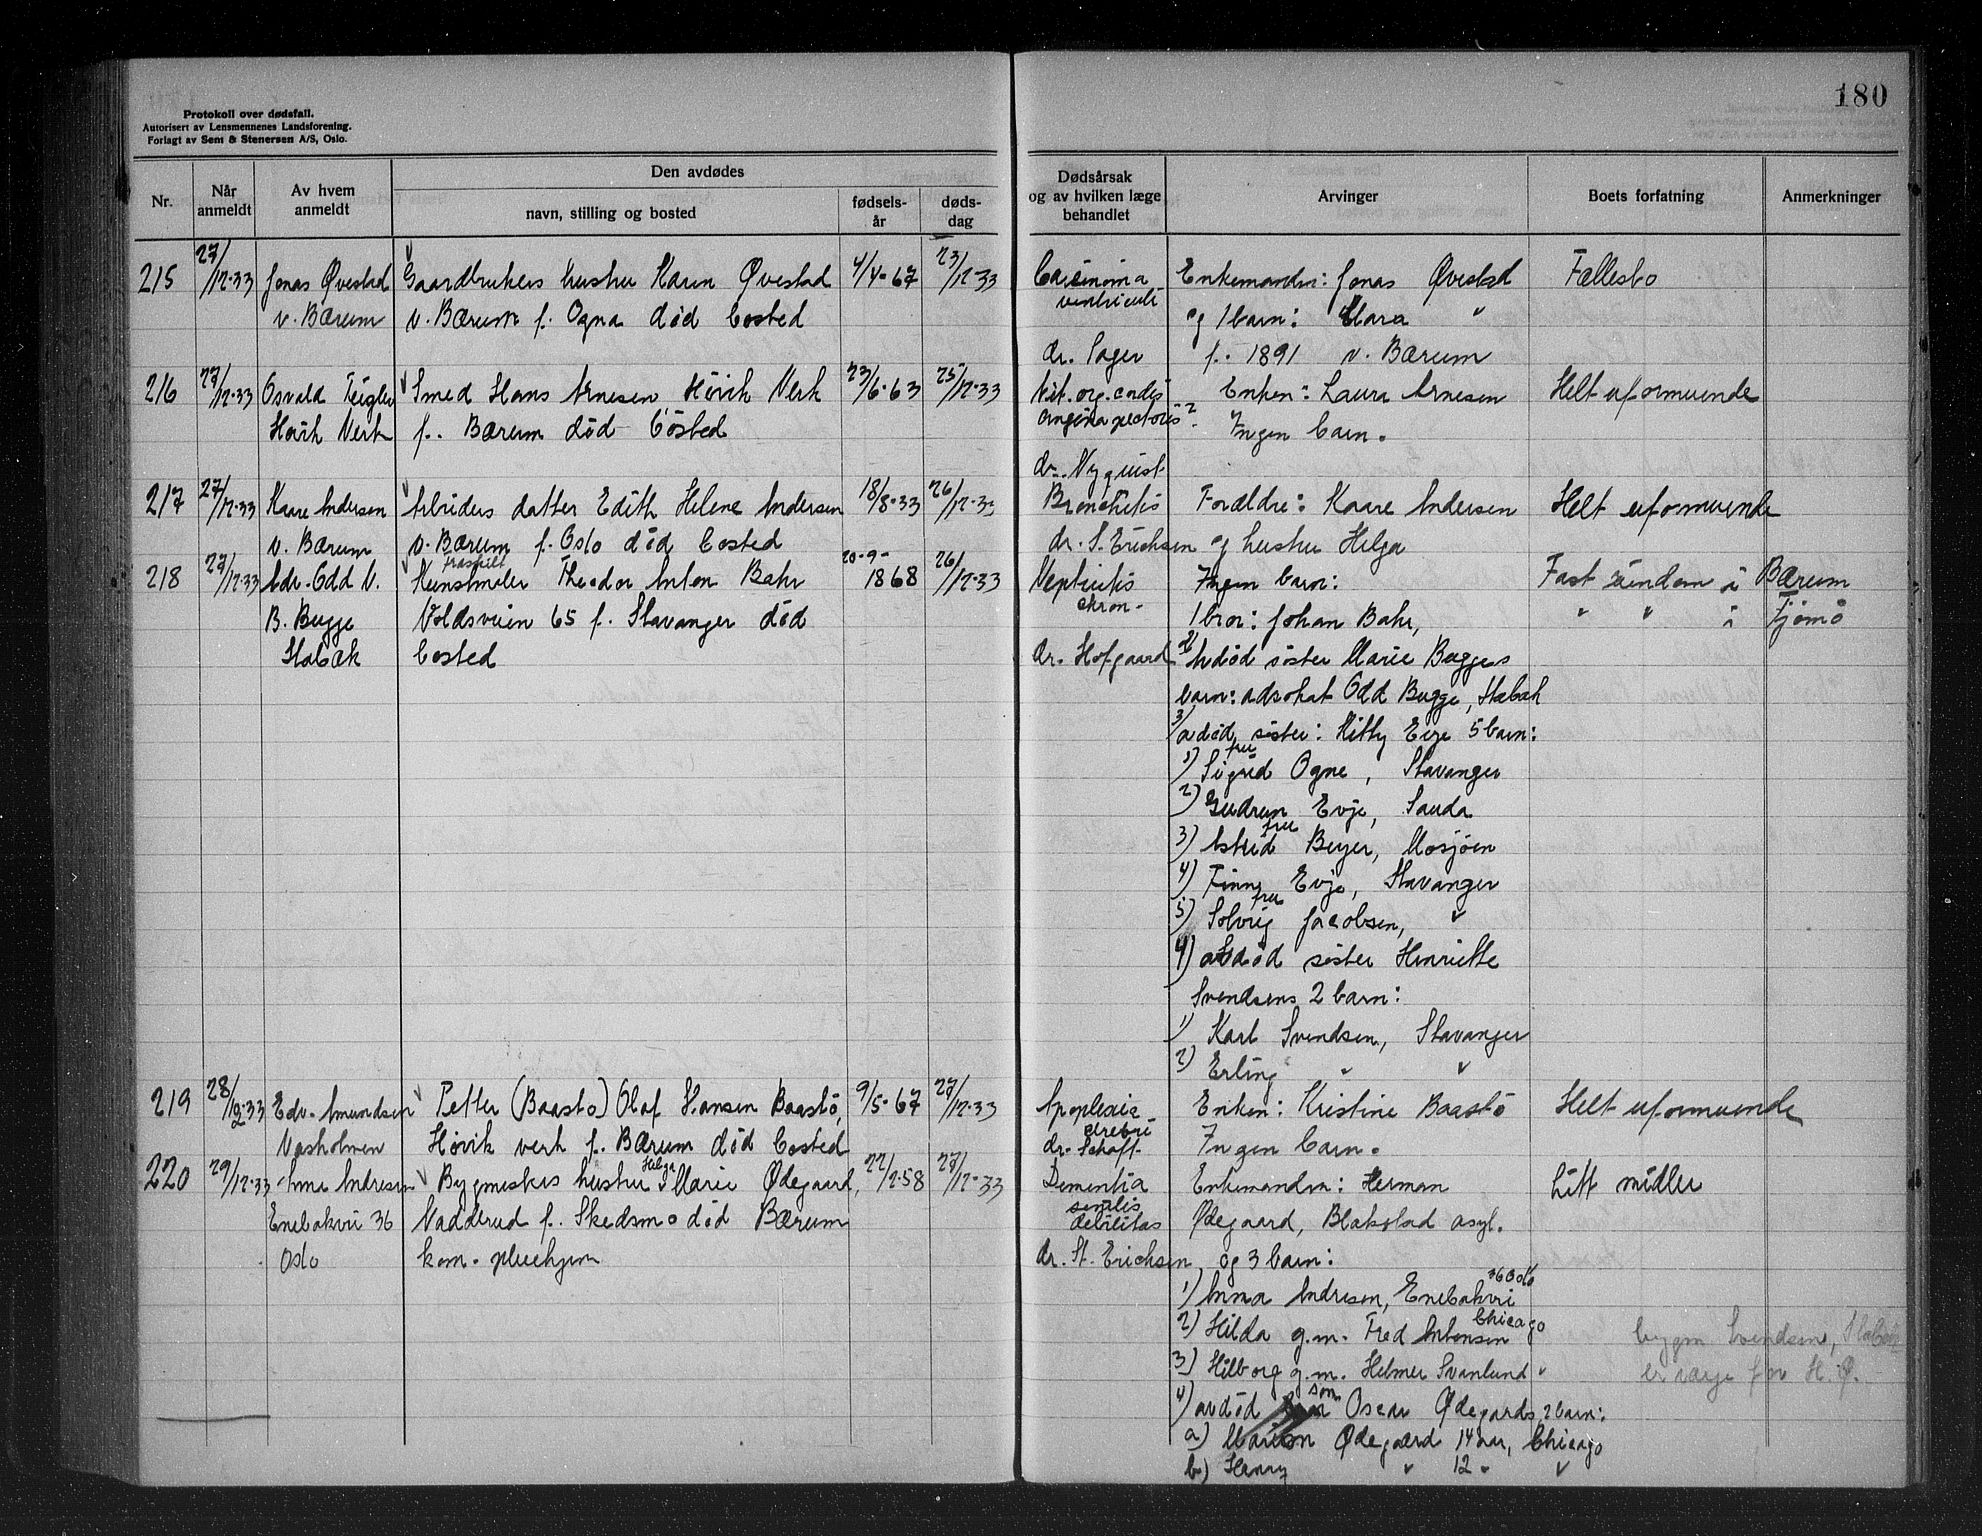 180
Protokoll over dødsfall.
Autorisert av Lensmennenes Landsforening.
Forlagt av Sem & Stenersen A/S, Oslo.
Nr.
Når anmeldt
Av hvem anmeldt
Den avdødes
navn, stilling og bosted
fødsels-år
døds-dag
Dødsårsak og av hvilken læge behandlet
Arvinger
Boets forfatning
Anmerkninger
215 27/12-33 Jonas Øvestad Gaardbrukers hustru Karen Øvestad 4/4-67 23/12-33 Carcinoma Enkemanden: Jonas Øvestad Fællesbo
v. Bærum v. Bærum f. Ogna død bosted ventriculi og 1 barn: Clara "
dr. Sager f. 1891 v. Bærum
216 27/12-33 Osvald Teigler Smed Hans Arnesen Høvik Verk 23/6-63 25/12-33 Vit. org. cordis Enken: Laura Arnesen Helt uformuende
Høvik Verk f. Bærum død bosted angina pectoris? Ingen barn.
dr. Nyquist
217 27/12-33 Kaare Andersen Arbeiders datter Edith Helene Andersen 18/8-33 26/12-33 Bronchitis Forældre: Kaare Andersen Helt uformuende
v. Bærum v. Bærum f. Oslo død bosted dr. S. Erichsen og hustru Helga
218 27/12-33 Adv. Odd V. fraskilt Kunstmaler Theodor Anton Bahr 20-9-1868 26/12-33 Nephritis Ingen barn: Fast eiendom i Bærum
B. Bugge Voldsveien 65 f. Stavanger død chron. 1 bror: Johan Bahr, " " i Tjømø
Stabæk bosted dr. Hofgaard 2) Avdød søster Marie Bugges
barn: advokat Odd Bugge, Stabæk
3) avdød søster: Kitty Evje 5 barn:
1) fru Sigrid Ogne, Stavanger
2) Gudrun Evje, Sauda
3) Astrid fru Beyer, Mosjøen
4) Finn Evje, Stavanger
5) Solveig fru Jacobsen, "
4) avdød søster Henriette
Svendsens 2 barn:
1) Karl Svendsen, Stavanger
2) Erling " "
219 28/12-33 Edv. Amundsen Petter (Baastø) Olaf Hansen Baastø, 9/5-67 27/12-33 Apoplexia Enken: Kristine Baastø Helt uformuende
Høvik verk f. Bærum død bosted cerebri Ingen barn.
dr. Schøff.
220 29/12-33 Anna Andresen Bygmesters hustru Helga Marie Ødegaard, 22/2-58 27/12-33 Dementia Enkemanden: Herman Litt midler
Enebakvei 36 Nadderud f. Skedsmo død Bærum senilis debilitas Ødegaard, Blakstad asyl.
Oslo kom. pleiehjem dr. St. Erichsen og 3 barn:
1) Anna Andresen, Enebakvei 36 Oslo
2) Hilda g.m. Fred Antonsen Chicago
3) Hilborg g.m. Helmer Svanlund "
4) avdød søn Oscar Ødegaards 2 barn:
a) Marion Ødegaard 14 aar, Chicago
b) Henry " 12 " "
bygm Svendsen, Stabæk
er verge for H. Ø.